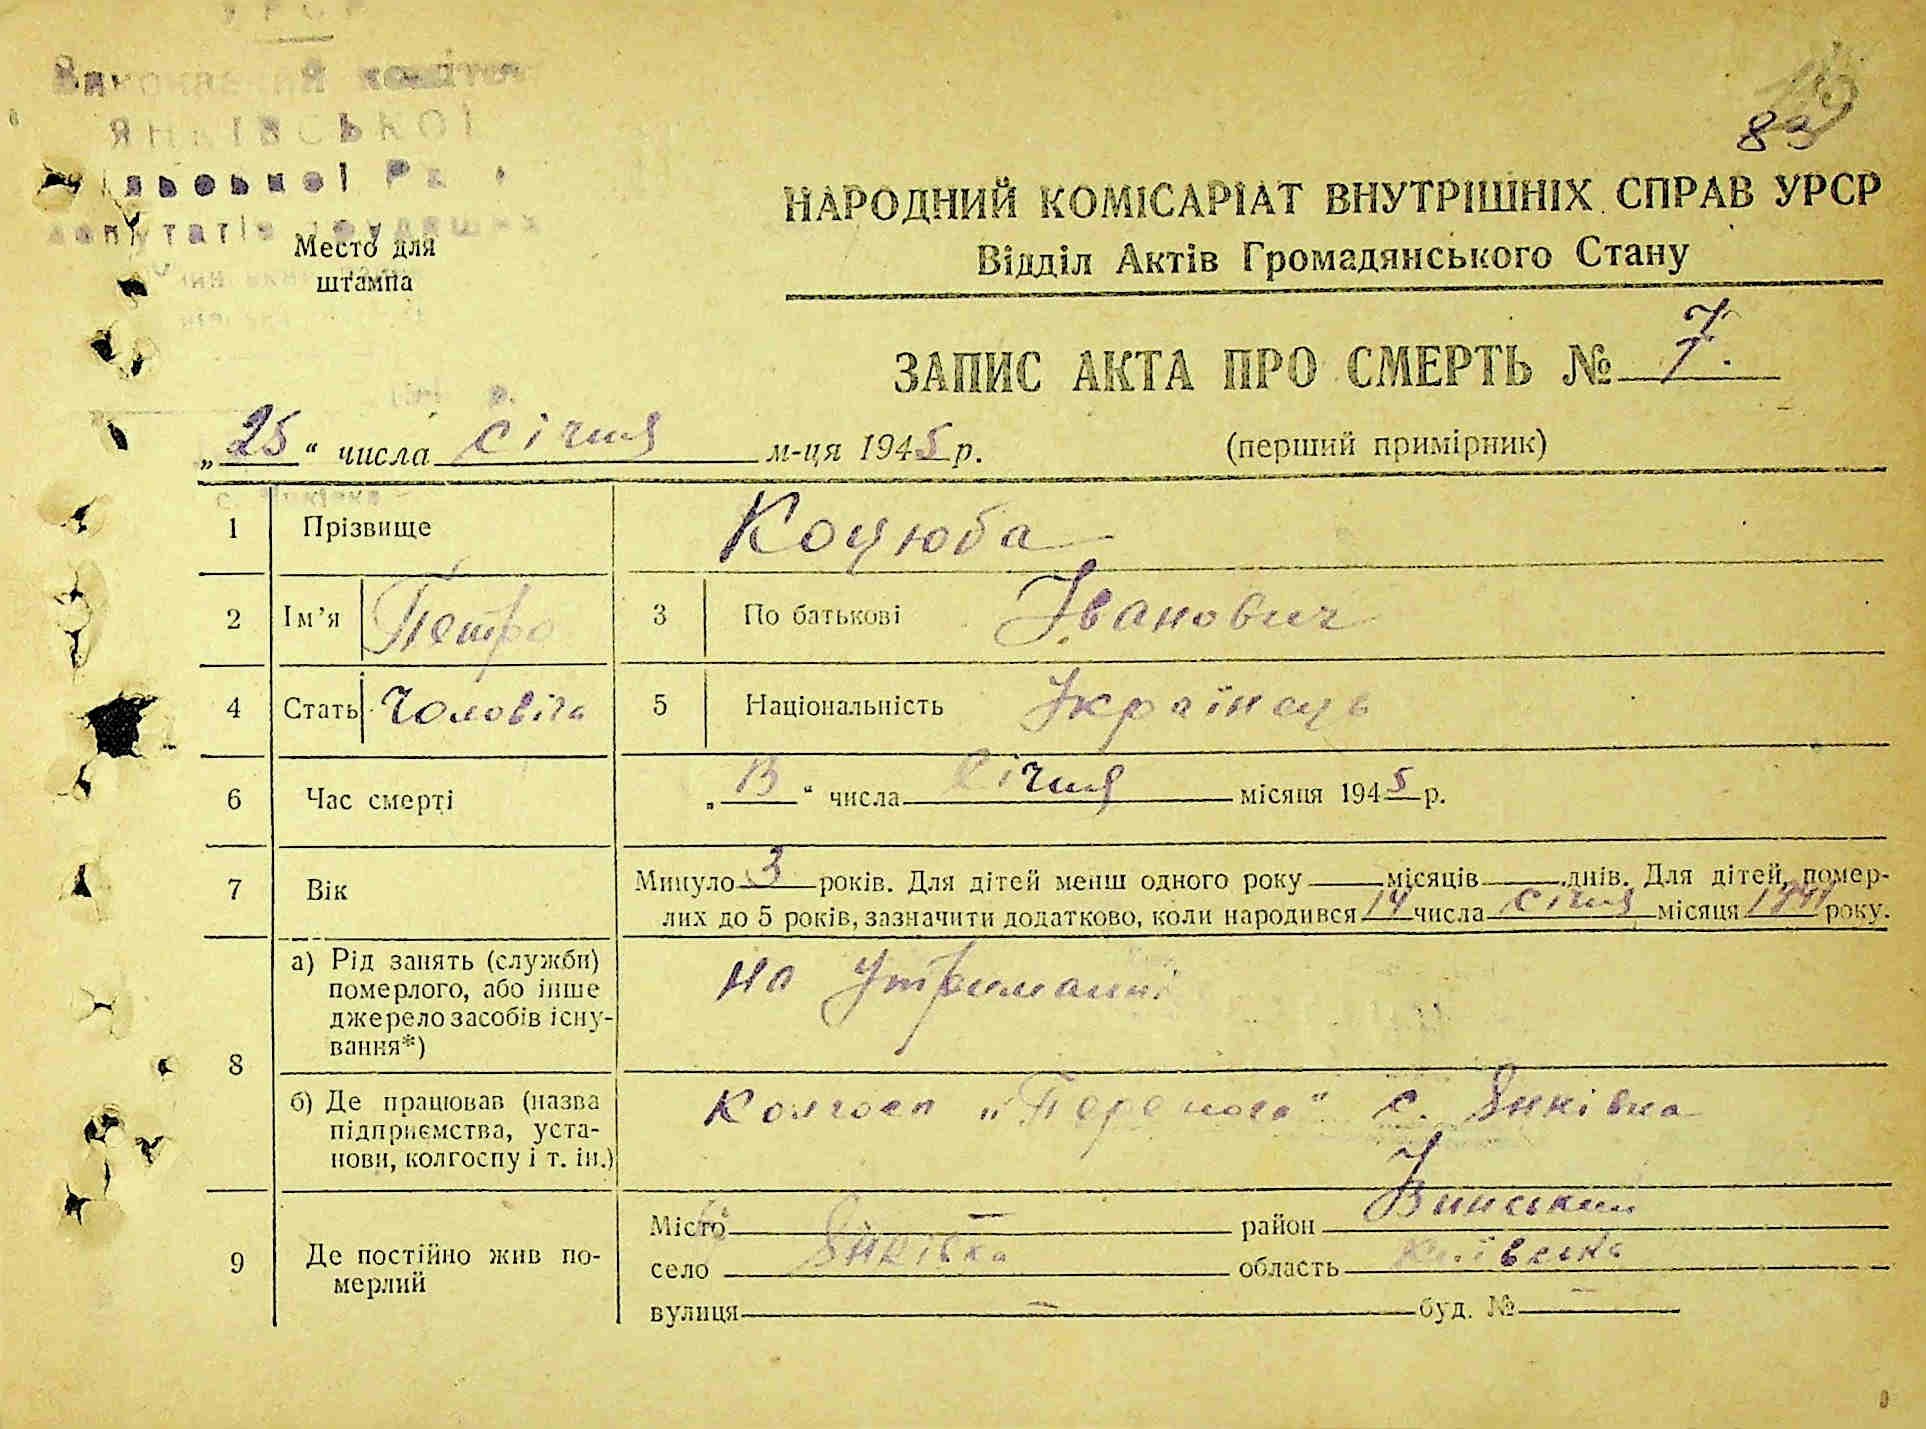 УРСР
Виконавчий комітет
ЯНКІВСЬКОЇ
депутатів трудящих
Место для
штампа
83
НАРОДНИЙ КОМІСАРІАТ ВНУТРІШНІХ СПРАВ УРСР
Відділ Актів Громадянського Стану
ЗАПИС АКТА ПРО СМЕРТЬ № 7.
„25“ числа січня м-ця 1945 р.
(перший примірник)
1 Прізвище Коцюба
2 Ім’я Петро 3 По батькові Іванович
4 Стать Чоловіча 5 Національність Українець
6 Час смерті „13“ числа Січня місяця 1945 р.
7 Вік Минуло 3 років. Для дітей менш одного року — місяців — днів. Для дітей, помер-
лих до 5 років, зазначити додатково, коли народився 14 числа січня місяця 1941 року.
8 а) Рід занять (служби)
померлого, або інше
джерело засобів існу-
вання*)
на утриманні
б) Де працював (назва
підприємства, уста-
нови, колгоспу і т. ін.)
Колгосп „Перемога“ с. Янківка
9 Де постійно жив по-
мерлий
Місто — район
село Янківка область Київська
вулиця — буд. № —